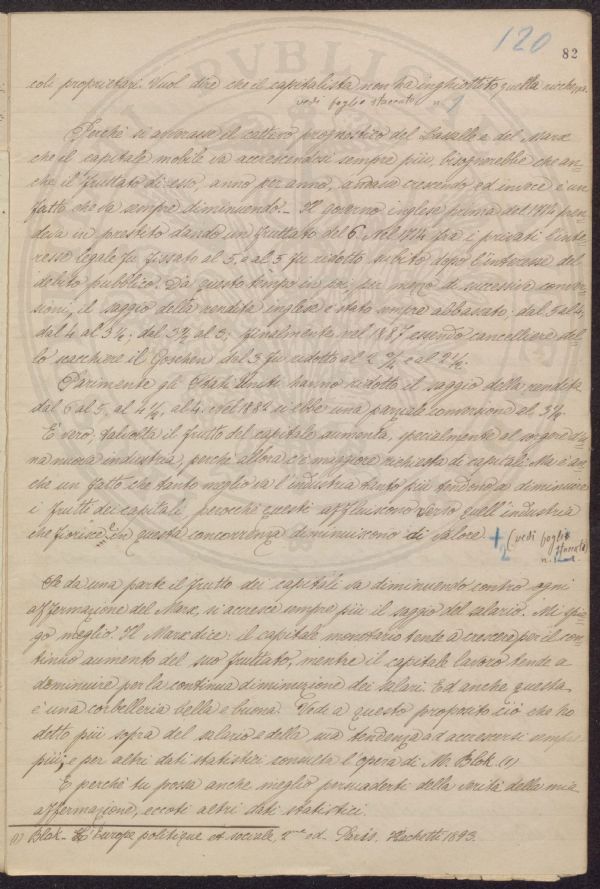 120
82
coli proprietari. Vuol dire che il capitalista non ha inghiottito quella ricchezza.
vedi foglio staccato n. 1
Perchè si avverasse il cattivo prognostico del Lassalle e del Marx
che il capitale mobile va accrescendosi sempre più, bisognerebbe che an=
che il fruttato di esso, anno per anno, andasse crescendo ed invece è un
fatto che va sempre diminuendo. Il governo inglese prima del 1714 pren
deva in prestito dando un fruttato del 6. Nel 1714 fra i privati l'inte
resse legale fu fissato al 5, e al 5 fu ridotto subito dopo l'interesse del
debito pubblico. Da questo tempo in poi, per mezzo di successive conver
sioni, il saggio della rendita inglese è stato sempre abbassato: dal 5 al 4,
dal 4 al 3½; dal 3½ al 3; finalmente nel 1887 essendo cancelliere del
lo scacchiere il Goschen dal 3 fu ridotto al 2 ¾ e al 2½.
Parimente gli Stati Uniti hanno ridotto il saggio della rendita
dal 6 al 5, al 4½, al 4. nel 1882 si ebbe una parziale conversione al 3½.
È vero, talvolta il frutto del capitale aumenta, specialmente al sorgere d'u
na nuova industria, perchè allora c'è maggiore richiesta di capitali. Ma è an
che un fatto che tanto meglio va l'industria tanto più tendono a diminuire
i frutti dei capitali perocchè questi affluiscono verso quell'industria
che fiorisce e in questa concorrenza diminuiscono di valore. + 2 (vedi foglio
staccato)
n.
Se da una parte il frutto dei capitali va diminuendo contro ogni
affermazione del Marx, si accresce sempre più il saggio del salario. Mi spie=
go meglio. Il Marx dice: il capitale monetario tende a crescere per il con=
tinuo aumento del suo fruttato, mentre il capitale lavoro tende a
diminuire per la continua diminuzione dei salari. Ed anche questa
è una corbelleria bella e buona. Vedi a questo proposito ciò che ho
detto più sopra del salario e della sua tendenza ad accrescersi sempre
più; e per altri dati statistici consulta l'opera di M. Blok. (1)
E perchè tu possa anche meglio persuaderti della verità della mia
affermazione, eccoti altri dati statistici.
(1) Blok - L'Europe politique et sociale, 2me ed. Paris. Hachette 1893.
PVBLICA